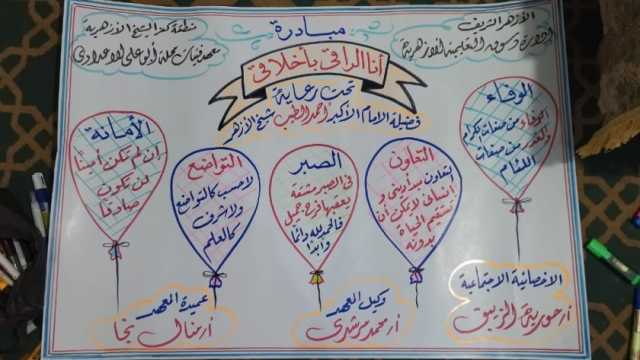 الأزهر الشريف
إدارة دسوق التعليمية الأزهرية
منطقة كفر الشيخ الأزهرية
معهد فتيات محلة أبو على الاعدادى
مبادرة
أنا الراقي بأخلاقي
تحت رعاية
فضيلة الإمام الأكبر أحمد الطيب شيخ الأزهر
الوفاء
الوفاء من صفات الكرام
والغدر من صفات
اللئام
التعاون
التعاون مبدأ ديني و
إنساني لا يمكن أن
تستقيم الحياة
بدونه
الصبر
فى الصبر مشقة
يعقبها فرج جميل
فالحمد لله دائما
وأبدًا
التواضع
لا حسب كالتواضع
ولا شرف
كالعلم
الأمانة
إن لم تكن أمينا
لن تكون
صادقا
الاخصائية الاجتماعية
وكيل المعهد
أ/ محمد مرشدى
عميدة المعهد
أ/ منال نجا